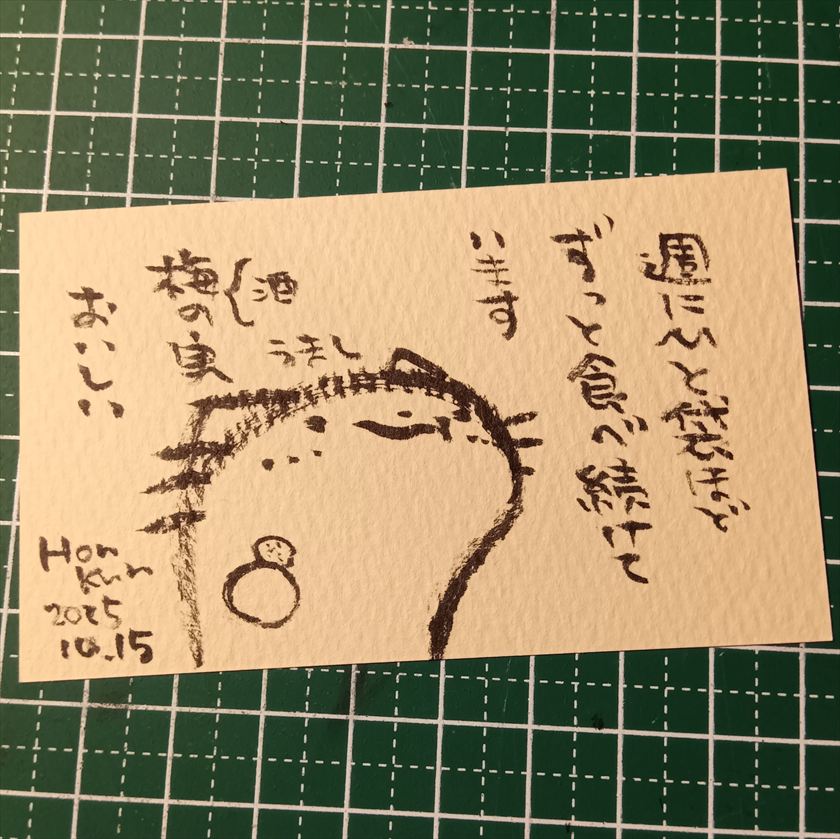 週にひと袋ほど
ずっと食べ続けて
います
酒
うまし
梅の実
おいしい
Hon
Kun
2025
10.15